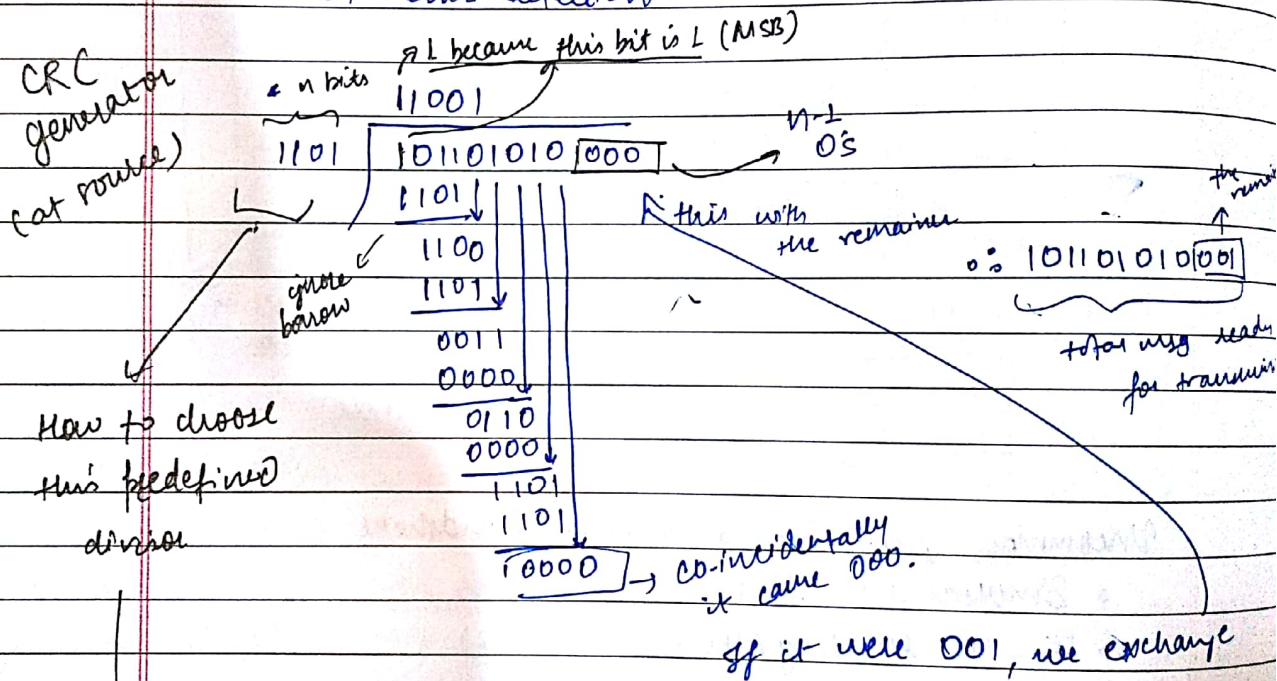 CRC
generator
(at source)
n bits
1 because this bit is 1 (MSB)
11001
1101
101101010 000
n-1
0's
1101
1100
1101
ignore
borrow
0011
0000
0110
0000
1101
1101
0000
co-incidentally
it came 000.
this with
the remainder
the
101101010 001
total msg ready
for
How to choose
this predefined
divisor
If it were 001, we exchange